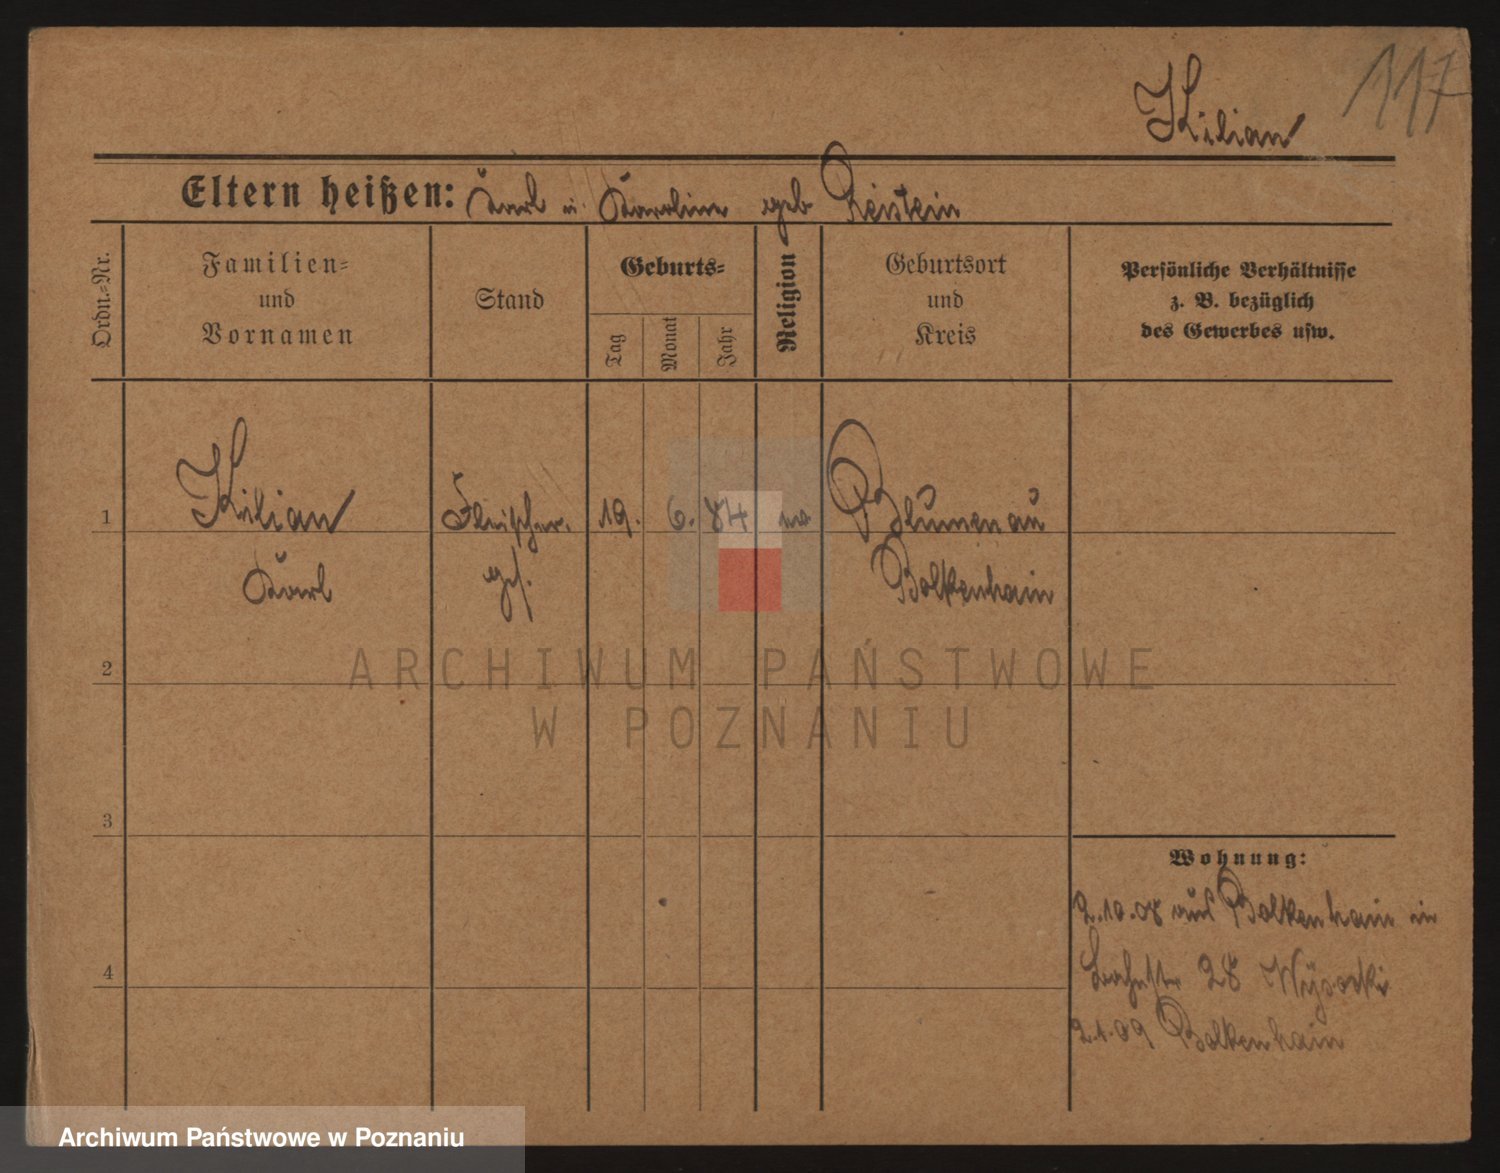 117
Kilian
Eltern heißen: Karl u. Karoline geb.
Ordn.=Nr.
Familien=
und
Vornamen
Stand
Geburts=
Tag
Monat
Jahr
Religion
Geburtsort
und
Kreis
Persönliche Verhältnisse
z. B. bezüglich
des Gewerbes usw.
1
Kilian
Fleischer-
19.
6.
84
Blumenau
Karl
ges.
Bolkenhain
2
3
4
Wohnung:
2.10.08 aus Bolkenhain in
28 Wysocki
09 Bolkenhain
ARCHIWUM PAŃSTWOWE
W POZNANIU
Archiwum Państwowe w Poznaniu